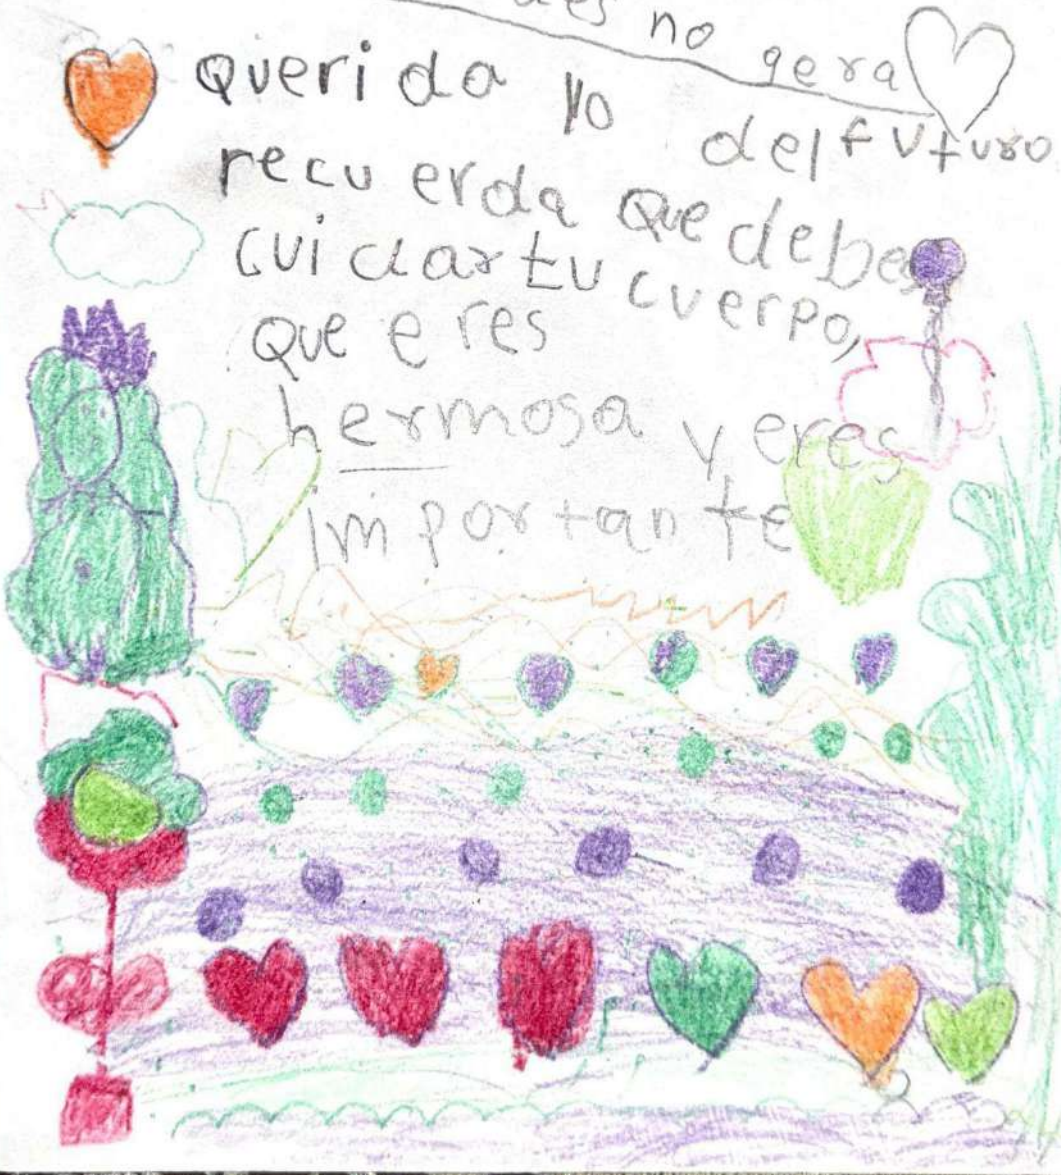 no gera
querida yo del futuro
recuerda que debes
cuidar tu cuerpo,
que eres
hermosa y eres
importante